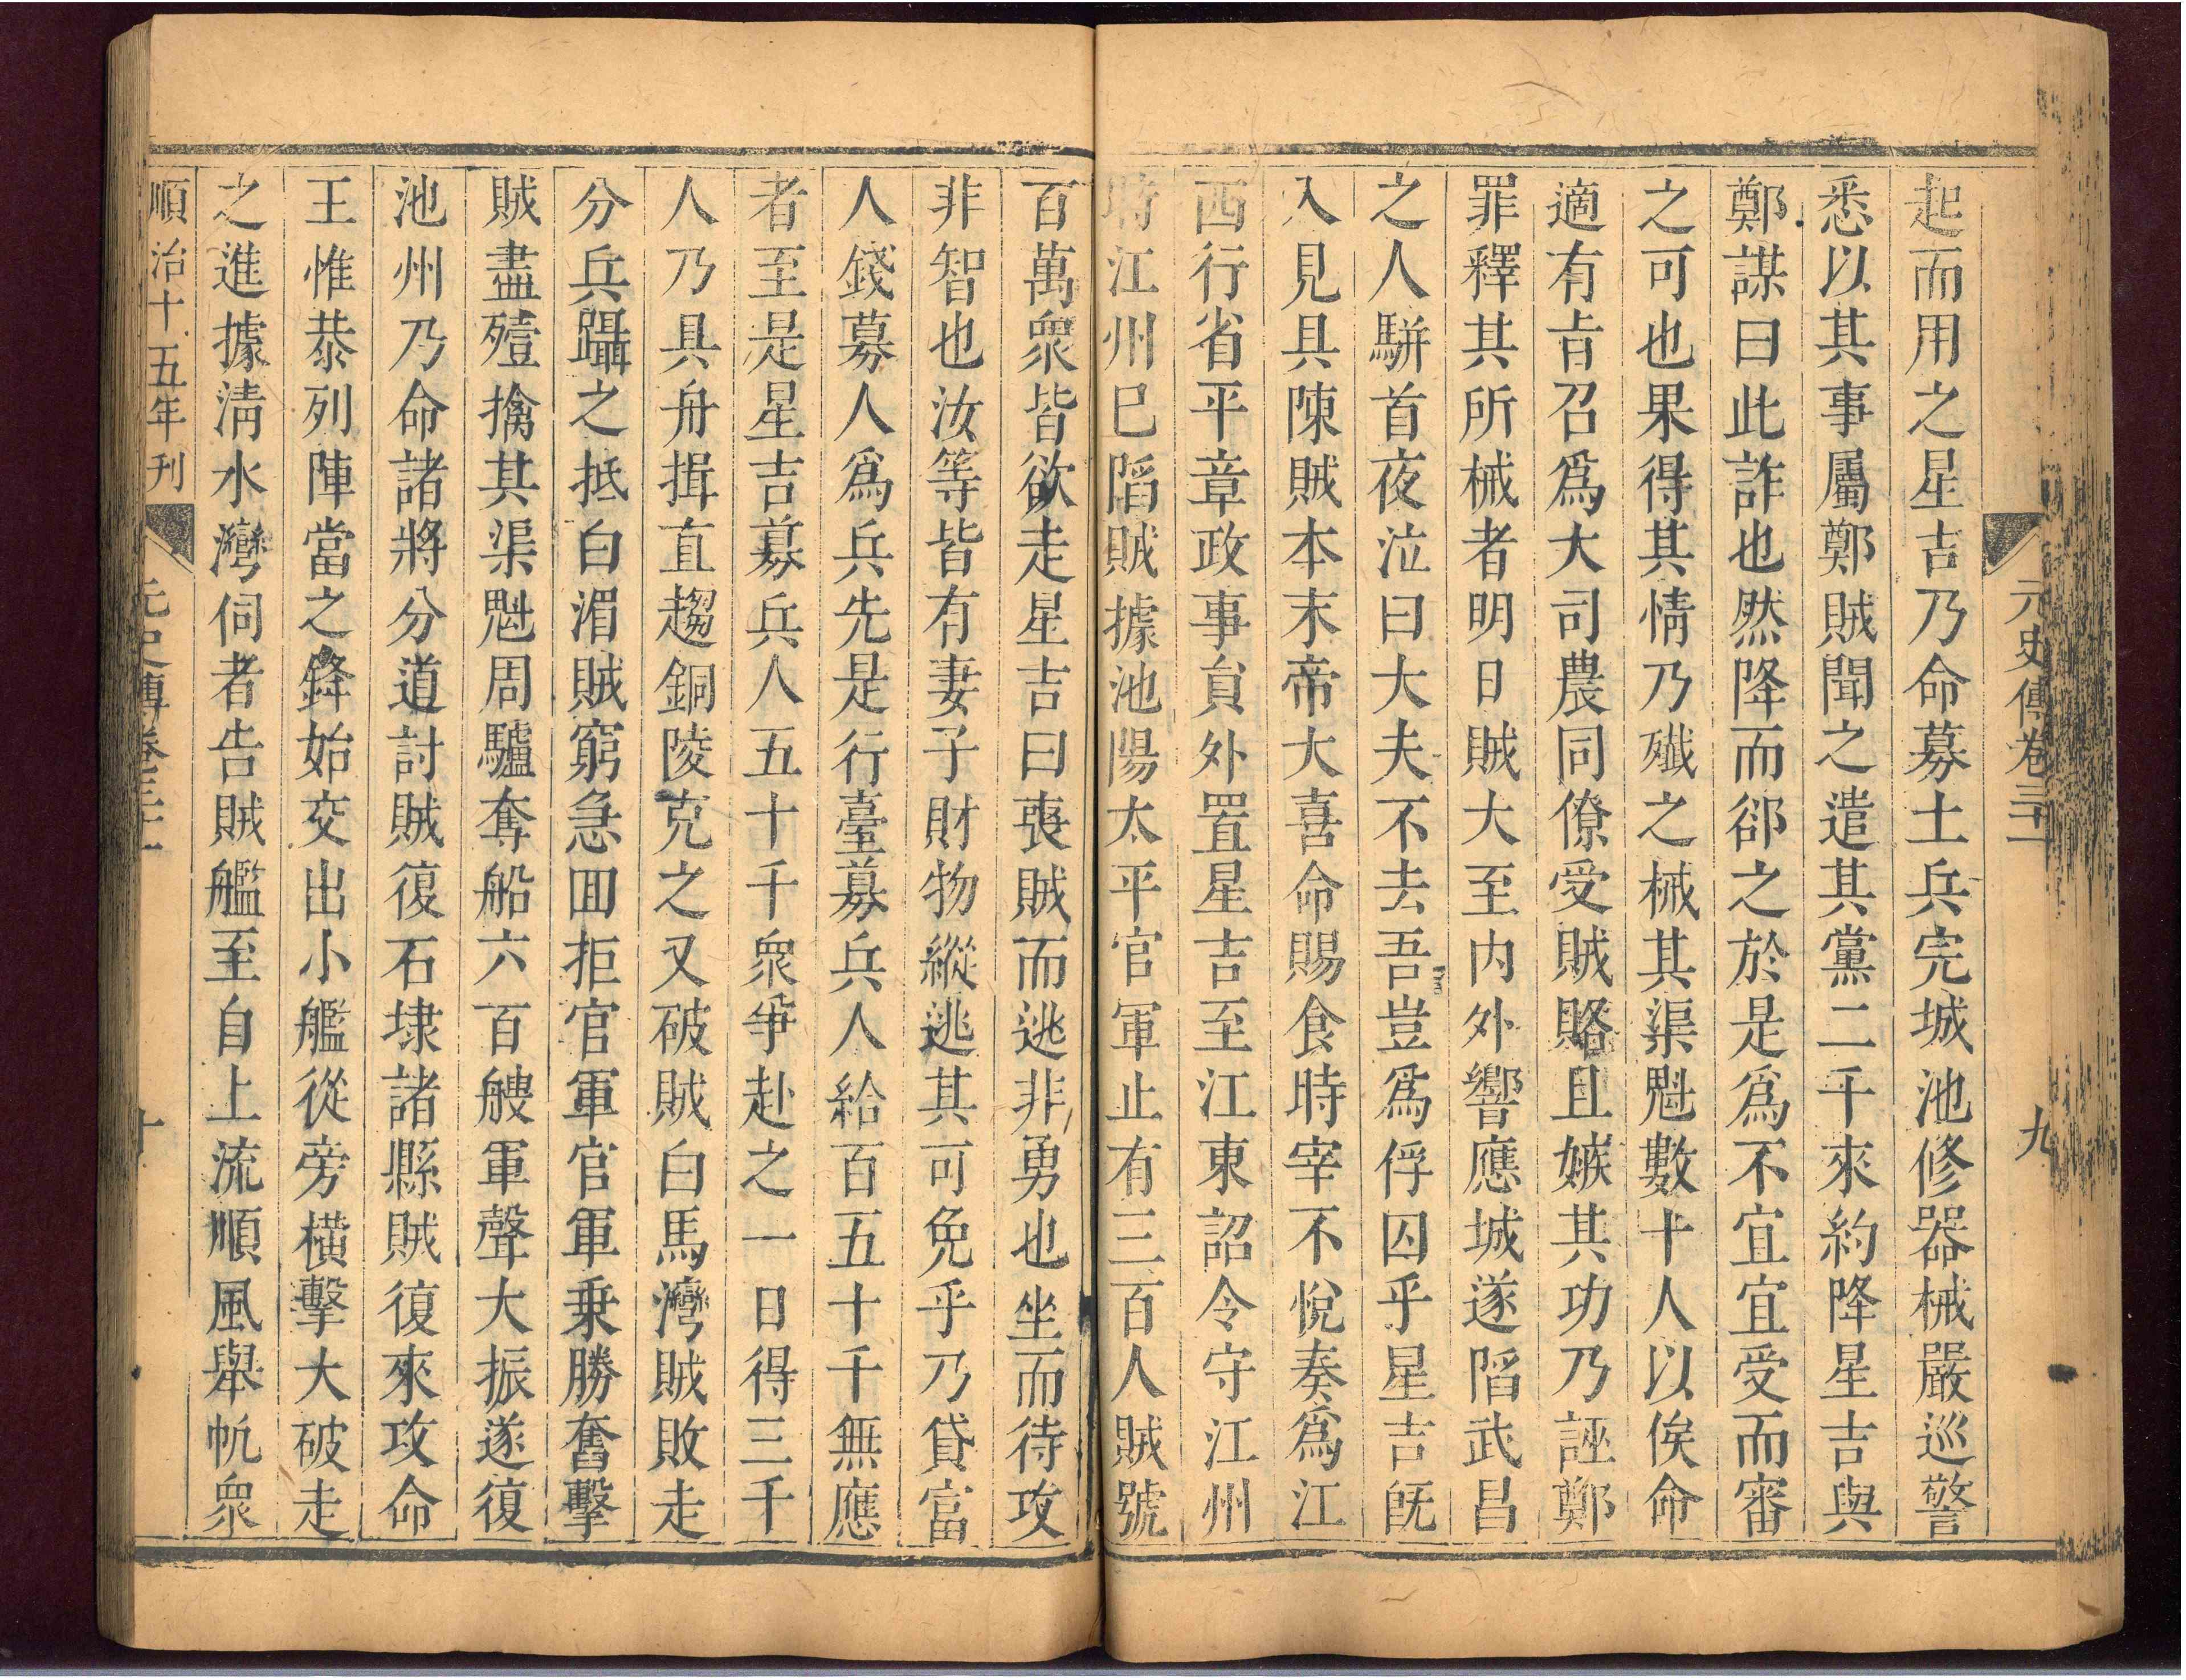 元史傳卷三十一
九
起而用之星吉乃命募土兵完城池修器械嚴巡警
悉以其事屬鄭賊聞之遣其黨二千來約降星吉與
鄭謀曰此詐也然降而郤之於是爲不宜宜受而審
之可也果得其情乃殲之械其渠魁數十人以俟命
適有㫖召爲大司農同僚受賊賂且嫉其功乃誣鄭
罪釋其所械者明日賊大至内外響應城遂陷武昌
之人駢首夜泣曰大夫不去吾豈爲俘囚乎星吉旣
入見具陳賊本末帝大喜命賜食時宰不悅奏爲江
西行省平章政事貟外置星吉至江東詔令守江州
時江州巳䧟賊據池陽太平官軍止有三百人賊號
百萬衆皆欲走星吉曰喪賊而逃非勇也坐而待攻
非智也汝等皆有妻子財物縱逃其可免乎乃貸富
人錢募人爲兵先是行臺募兵人給百五十千無應
者至是星吉募兵人五十千衆爭赴之一日得三千
人乃具舟揖直趨銅陵克之又破賊白馬灣賊敗走
分兵躡之抵白湄賊窮急囬拒官軍官軍乗勝奮擊
賊盡殪擒其渠魁周驢奪船六百艘軍聲大振遂復
池州乃命諸將分道討賊復石埭諸縣賊復來攻命
王惟恭列陣當之鋒始交出小艦從旁横擊大破走
之進據清水灣伺者告賊艦至自上流順風舉帆衆
順治十五年刊
元史傳卷三十一
十